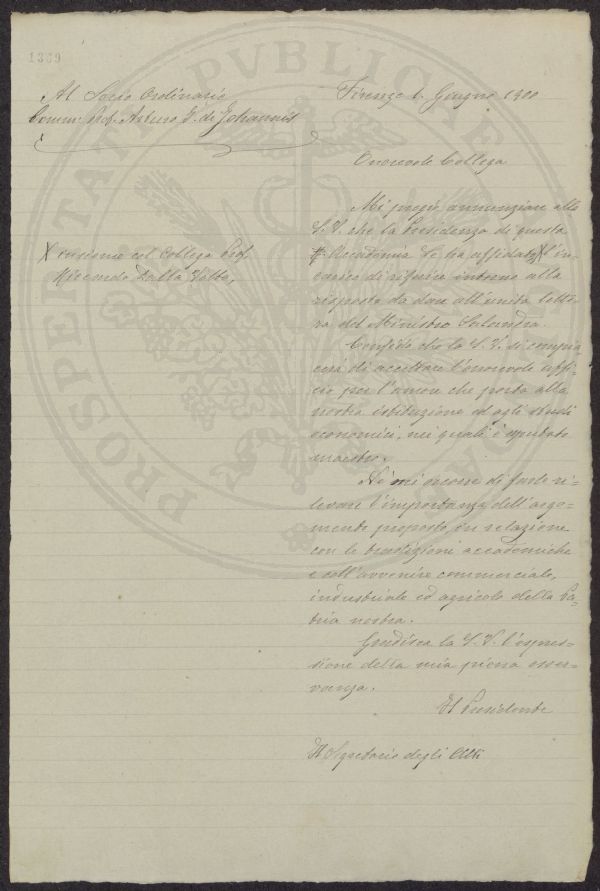 1369
PROSPERITATI PUBLICAE
Al Socio Ordinario
Comm. Prof. Arturo J. de Johannis
Firenze 1. Giugno 1900
Onorevole Collega
Mi pregio annunziare alla
S. V. che la Presidenza di questa
R. Accademia Le ha affidato X l'in-
carico di riferire intorno alla
risposta da dare all'unita lette-
ra del Ministro Salandra.
X insieme col Collega Prof.
Riccardo Dalla Volta,
Confido che la S. V. si compia-
cerà di accettare l'onorevole uffi-
cio per l'amore che porta alla
nostra istituzione ed agli studi
economici, nei quali è reputato
maestro.
Nè mi occorre di farle ri-
levare l'importanza dell'argo-
mento proposto in relazione
con le tradizioni accademiche
e coll'avvenire commerciale,
industriale ed agricolo della Pa-
tria nostra.
Gradisca la S. V. l'espres-
sione della mia piena osser-
vanza.
Il Presidente
Il Segretario degli Atti